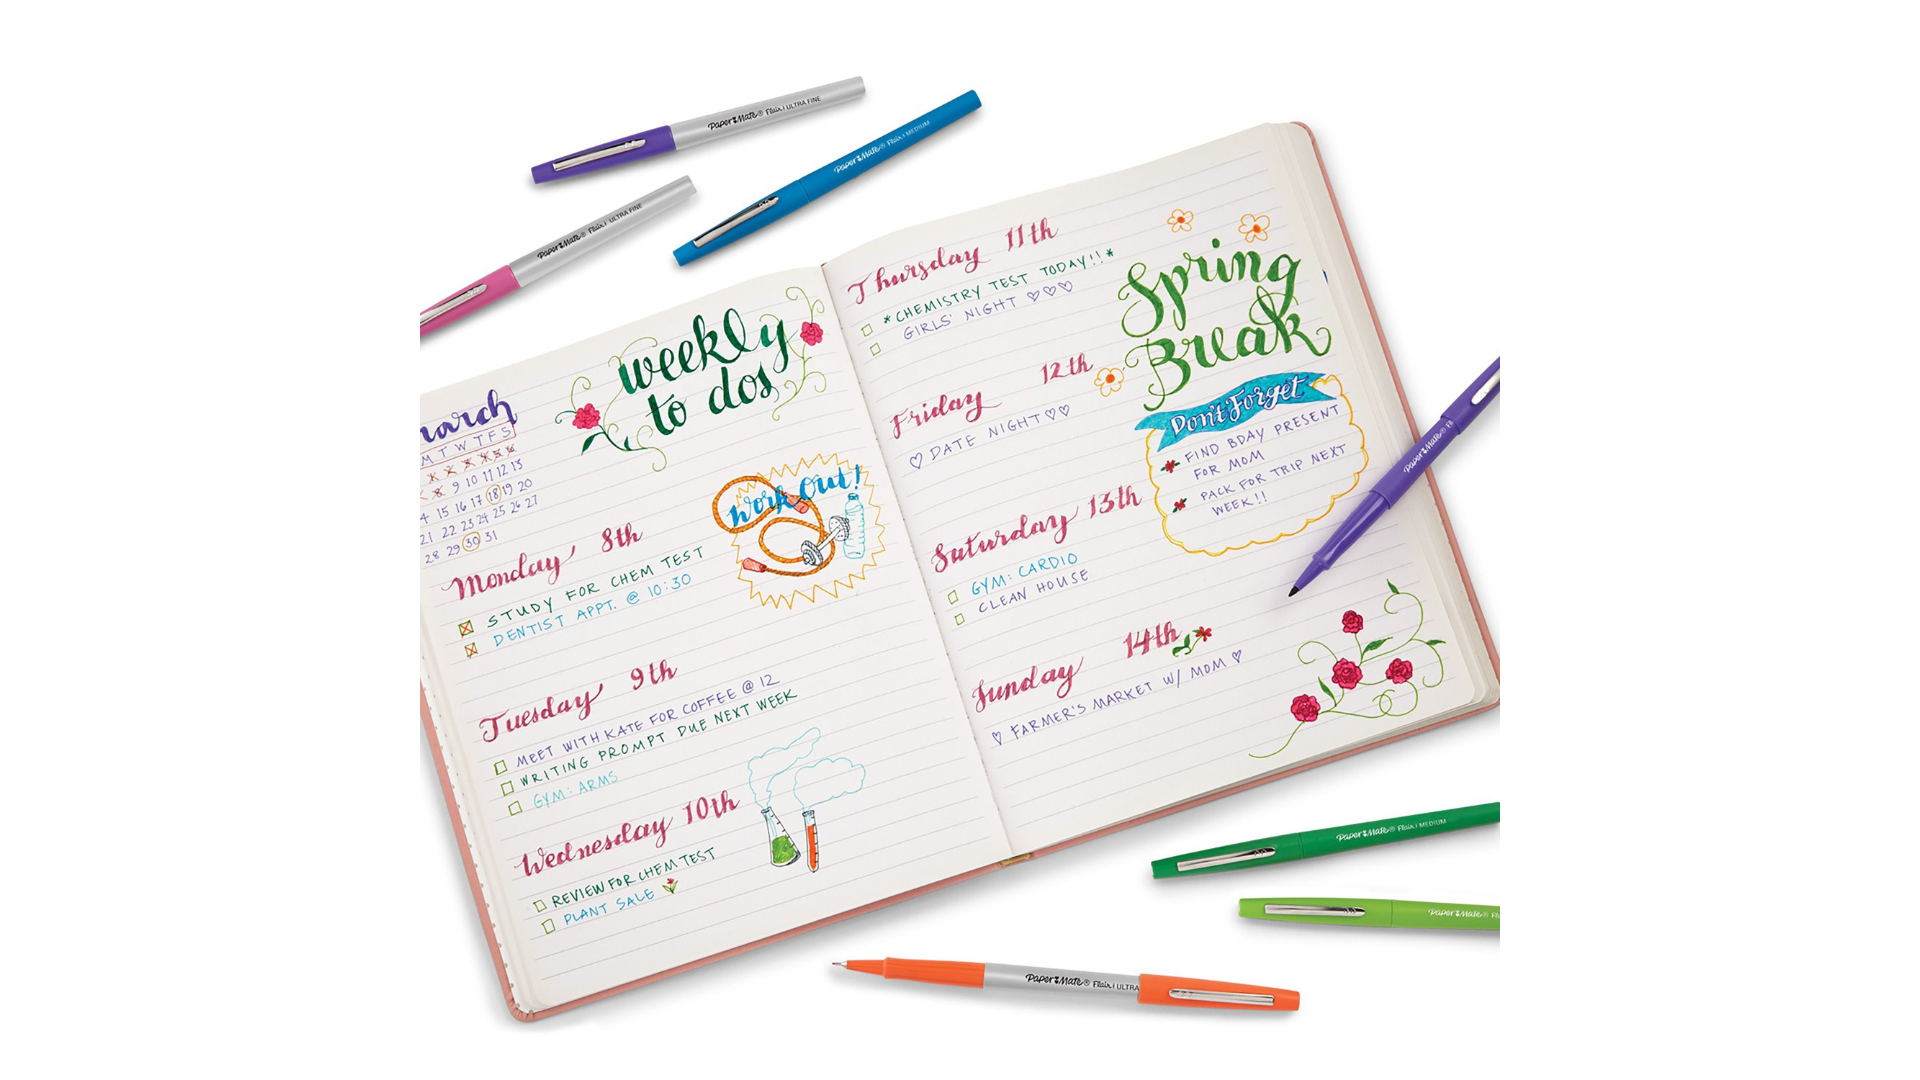 Paper Mate® Flair | ULTRA FINE
Paper Mate® Flair | MEDIUM
Paper Mate® Flair | ULTRA FINE
weekly
to dos
arch
M T W T F S
8 9 10 11 12 13
4 15 16 17 18 19 20
21 22 23 24 25 26 27
28 29 30 31
Work Out!
Monday 8th
STUDY FOR CHEM TEST
DENTIST APPT. @ 10:30
Tuesday 9th
MEET WITH KATE FOR COFFEE @ 12
WRITING PROMPT DUE NEXT WEEK
GYM: ARMS
Wednesday 10th
REVIEW FOR CHEM TEST
PLANT SALE
Thursday 11th
*CHEMISTRY TEST TODAY!!*
GIRLS' NIGHT ♡♡♡
Friday 12th
♡ DATE NIGHT ♡♡
Saturday 13th
GYM: CARDIO
CLEAN HOUSE
Sunday 14th
♡ FARMER'S MARKET W/ MOM ♡
Spring
Break
Don't Forget
FIND BDAY PRESENT
FOR MOM
PACK FOR TRIP NEXT
WEEK!!
Paper Mate®
Paper Mate® Flair | MEDIUM
Paper Mate®
Paper Mate® Flair | ULTRA